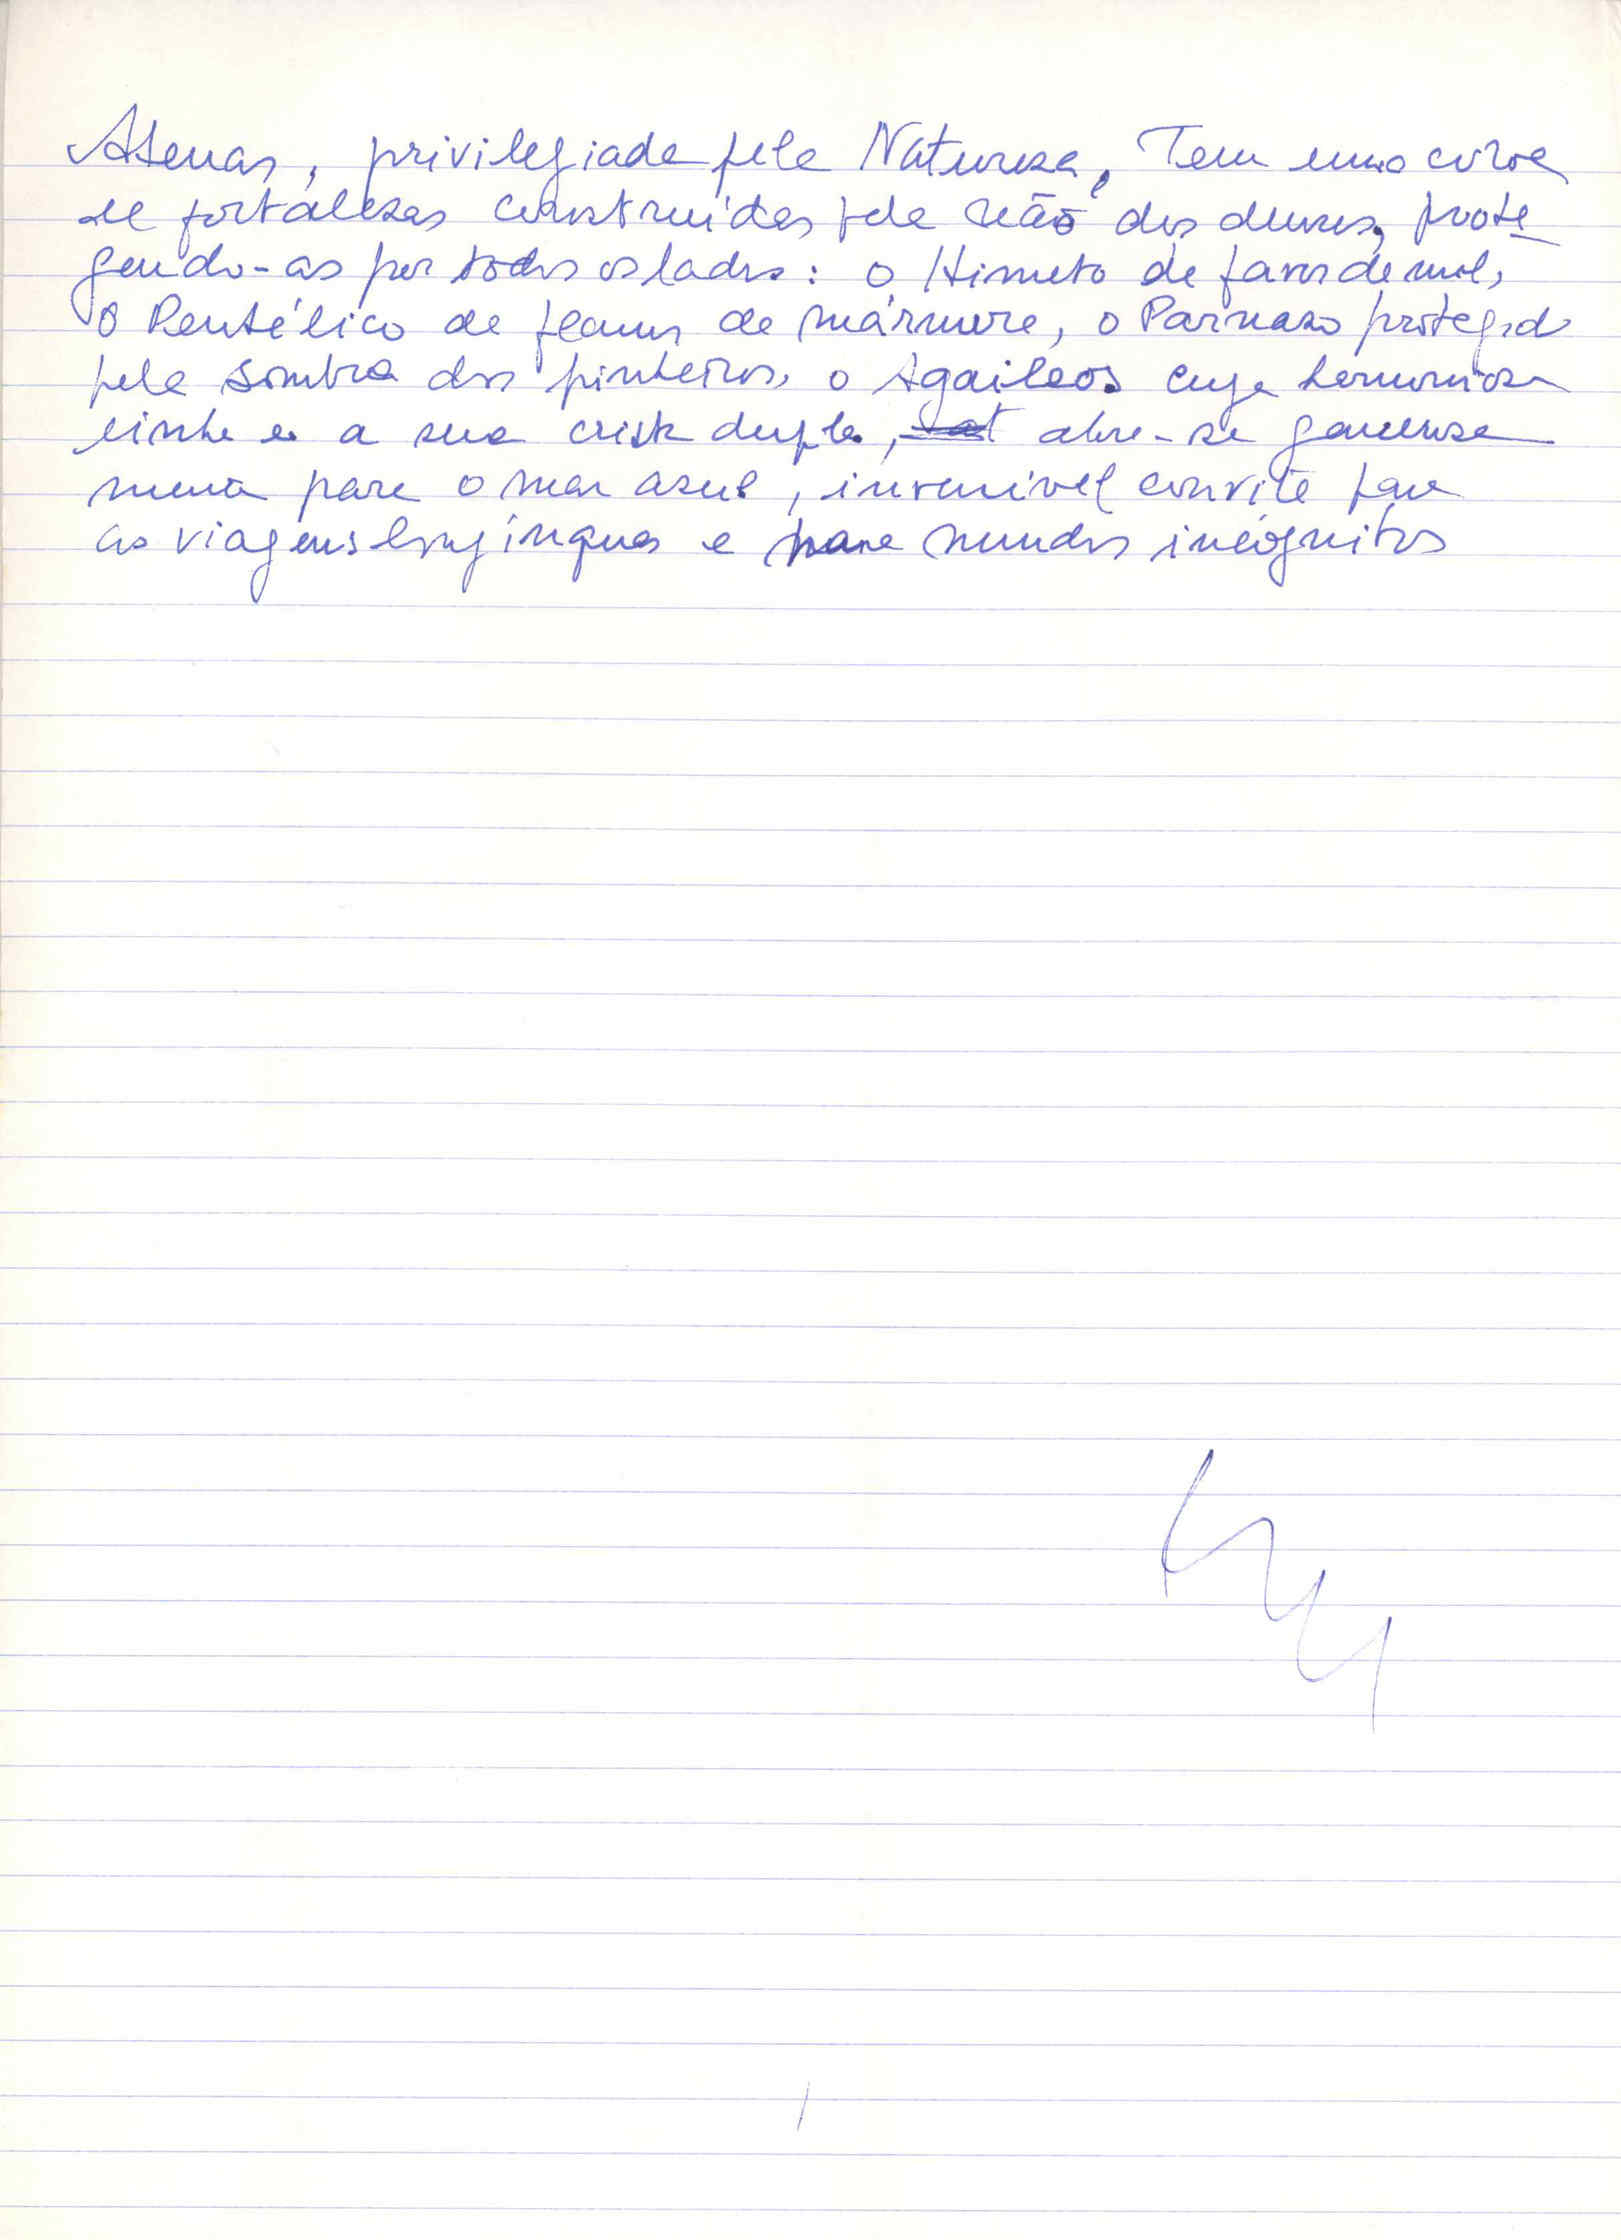 Atenas, privilegiada pela Natureza, Tem uma coroa
de fortalezas construídas pela mão dos deuses, prote
gendo-as por todos os lados: o Himeto de favos de mel,
O Pentélico de flancos de mármore, o Parnaso protegido
pela sombra dos pinheiros, o Agaileos cuja harmoniosa
linha é a sua crista dupla, abre-se generosa
mena para o mar azul, invencível convite para
as viagens longínquas e para mundos incógnitos